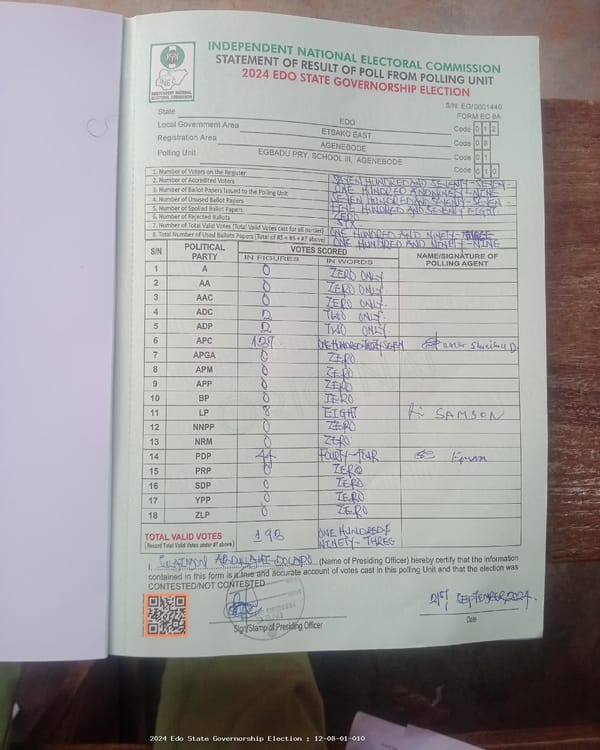 INEC
INDEPENDENT NATIONAL ELECTORAL COMMISSION
INDEPENDENT NATIONAL ELECTORAL COMMISSION
STATEMENT OF RESULT OF POLL FROM POLLING UNIT
2024 EDO STATE GOVERNORSHIP ELECTION
S/N: EG/0001440
FORM EC 8A
State EDO Code 0 1 2
Local Government Area ETSAKO EAST Code 0 8
Registration Area AGENEBODE Code 0 1
Polling Unit EGBADU PRY. SCHOOL III, AGENEBODE Code 0 1 0
1. Number of Voters on the Register SEVEN HUNDRED AND SEVENTY-SEVEN
2. Number of Accredited Voters ONE HUNDRED AND NINETY-NINE
3. Number of Ballot Papers Issued to the Polling Unit SEVEN HUNDRED AND SEVENTY-SEVEN
4. Number of Unused Ballot Papers FIVE HUNDRED AND SEVENTY EIGHT
5. Number of Spoiled Ballot Papers ZERO
6. Number of Rejected Ballots SIX
7. Number of Total Valid Votes (Total Valid Votes cast for all parties) ONE HUNDRED AND NINETY-THREE
8. Total Number of Used Ballots Papers (Total of #5 + #6 + #7 above) ONE HUNDRED AND NINETY-NINE
S/N POLITICAL PARTY VOTES SCORED NAME/SIGNATURE OF POLLING AGENT
IN FIGURES IN WORDS
1 A 0 ZERO ONLY
2 AA 0 ZERO ONLY
3 AAC 0 ZERO ONLY.
4 ADC 2 TWO ONLY.
5 ADP 2 TWO ONLY
6 APC 137 ONE HUNDRED THIRTY SEVEN
7 APGA 0 ZERO
8 APM 0 ZERO
9 APP 0 ZERO
10 BP 0 ZERO
11 LP 8 EIGHT SAMSON
12 NNPP 0 ZERO
13 NRM 0 ZERO
14 PDP 44 FOURTY-FOUR
15 PRP 0 ZERO
16 SDP 0 ZERO
17 YPP 0 ZERO
18 ZLP 0 ZERO
TOTAL VALID VOTES 193 ONE HUNDRED &
(Record Total Valid Votes under #7 above) NINETY-THREE
I, SULAIMON ABDULLAHI DOLAPO (Name of Presiding Officer) hereby certify that the information
contained in this form is a true and accurate account of votes cast in this polling Unit and that the election was
CONTESTED/NOT CONTESTED
21ST SEPTEMBER, 2024.
Sign/Stamp of Presiding Officer Date
2024 Edo State Governorship Election : 12-08-01-010